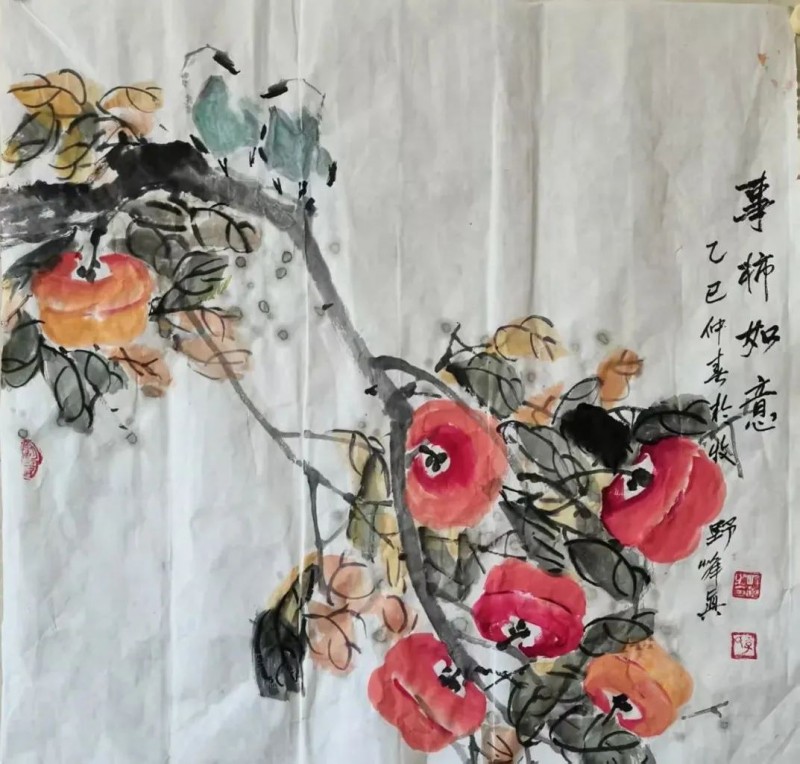 事柿如意
乙巳仲春於牧
野峰兴